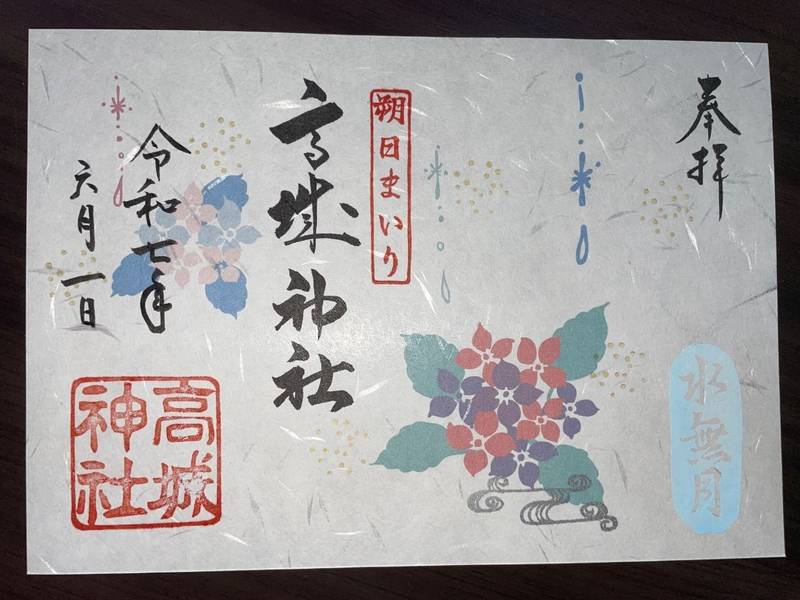 奉拝
水無月
朔日まいり
高城神社
令和七年
六月一日
高城
神社